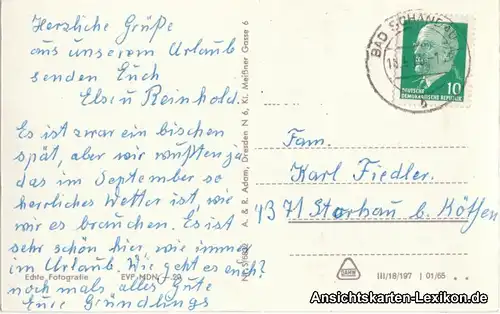 Herzliche Grüße
aus unserem Urlaub
senden Euch
Else u Reinhold.
Es ist zwar ein bischen
spät, aber wir wußten ja
das im September so
herrliches Wetter ist, wie
wir es brauchen. Es ist
sehr schön hier, wie immer
im Urlaub. Wie geht es euch?
noch mals alles Gute
Eure Gründlings
Echte Fotografie EVP MDN -,20
A. & R. Adam, Dresden N 6, Kl. Meißner Gasse 6
BAD SCHANDAU
b
10
DEUTSCHE
DEMOKRATISCHE REPUBLIK
Fam.
Karl Fiedler.
4371 Storkau b. Köthen
III/18/197 01/65
Ansichtskarten-Lexikon.de